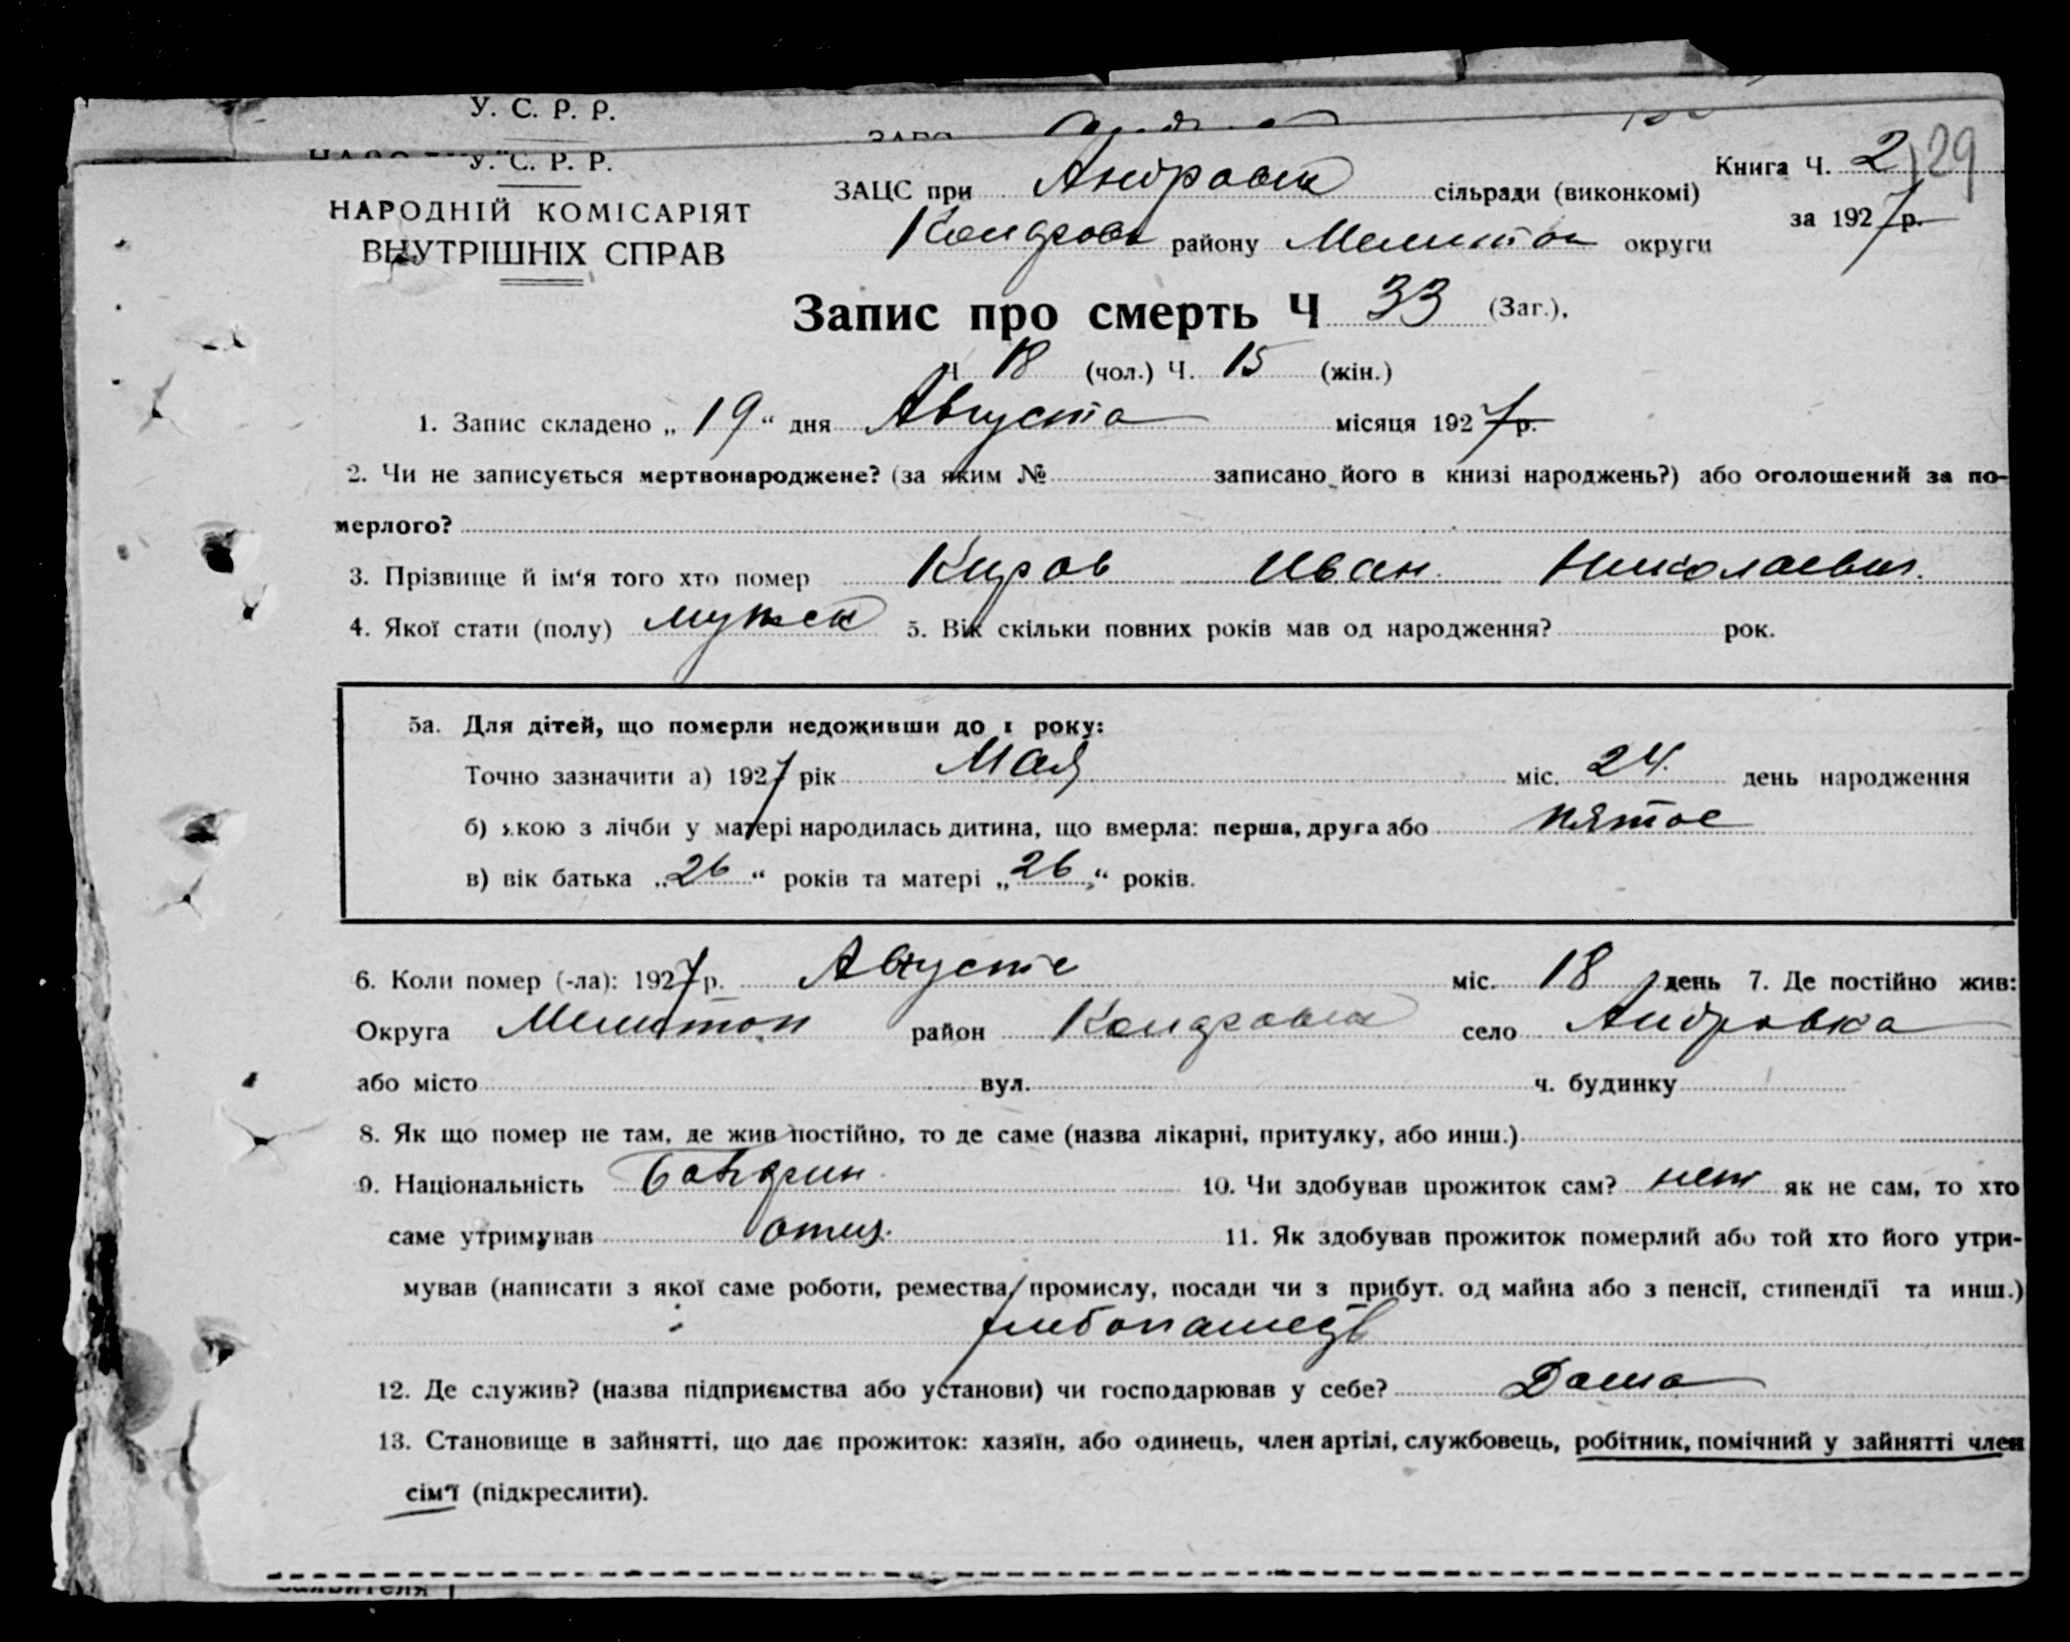 У. С. Р. Р.
У. С. Р. Р.
НАРОДНІЙ КОМІСАРІЯТ
ВНУТРІШНІХ СПРАВ
ЗАЦС при Андровск сільради (виконкомі)
районy Мелитоп округи
Книга Ч. 2 29
за 1927 р.
Запис про смерть Ч 33 (Заг.).
Ч 18 (чол.) Ч. 15 (жін.)
1. Запис складено „ 19 “ дня Августа місяця 1927 р.
2. Чи не записується мертвонароджене? (за яким № записано його в книзі народжень?) або оголошений за по-
мерлого?
3. Прізвище й ім‘я того хто помер Киров Иван Николаевич.
4. Якої стати (полу) мужск 5. Вік скільки повних років мав од народження? рок.
5а. Для дітей, що померли недоживши до 1 року:
Точно зазначити а) 1927 рік Мая міс. 24. день народження
б) якою з лічби у матері народилась дитина, що вмерла: перша, друга або пятое
в) вік батька „26“ років та матері „26“ років.
6. Коли помер (-ла): 1927 р. Августе міс. 18 день 7. Де постійно жив:
Округа Мелитоп район село Андровка
або місто вул. ч. будинку
8. Як що помер не там, де жив постійно, то де саме (назва лікарні, притулку, або инш.)
9. Національність 10. Чи здобував прожиток сам? нет як не сам, то хто
саме утримував отец. 11. Як здобував прожиток померлий або той хто його утри-
мував (написати з якої саме роботи, ремества, промислу, посади чи з прибут. од майна або з пенсії, стипендії та инш.)
хлебопашед
12. Де служив? (назва підприємства або установи) чи господарював у себе? Дома
13. Становище в зайнятті, що дає прожиток: хазяїн, або одинець, член артілі, службовець, робітник, помічний у зайнятті член
сім‘ї (підкреслити).